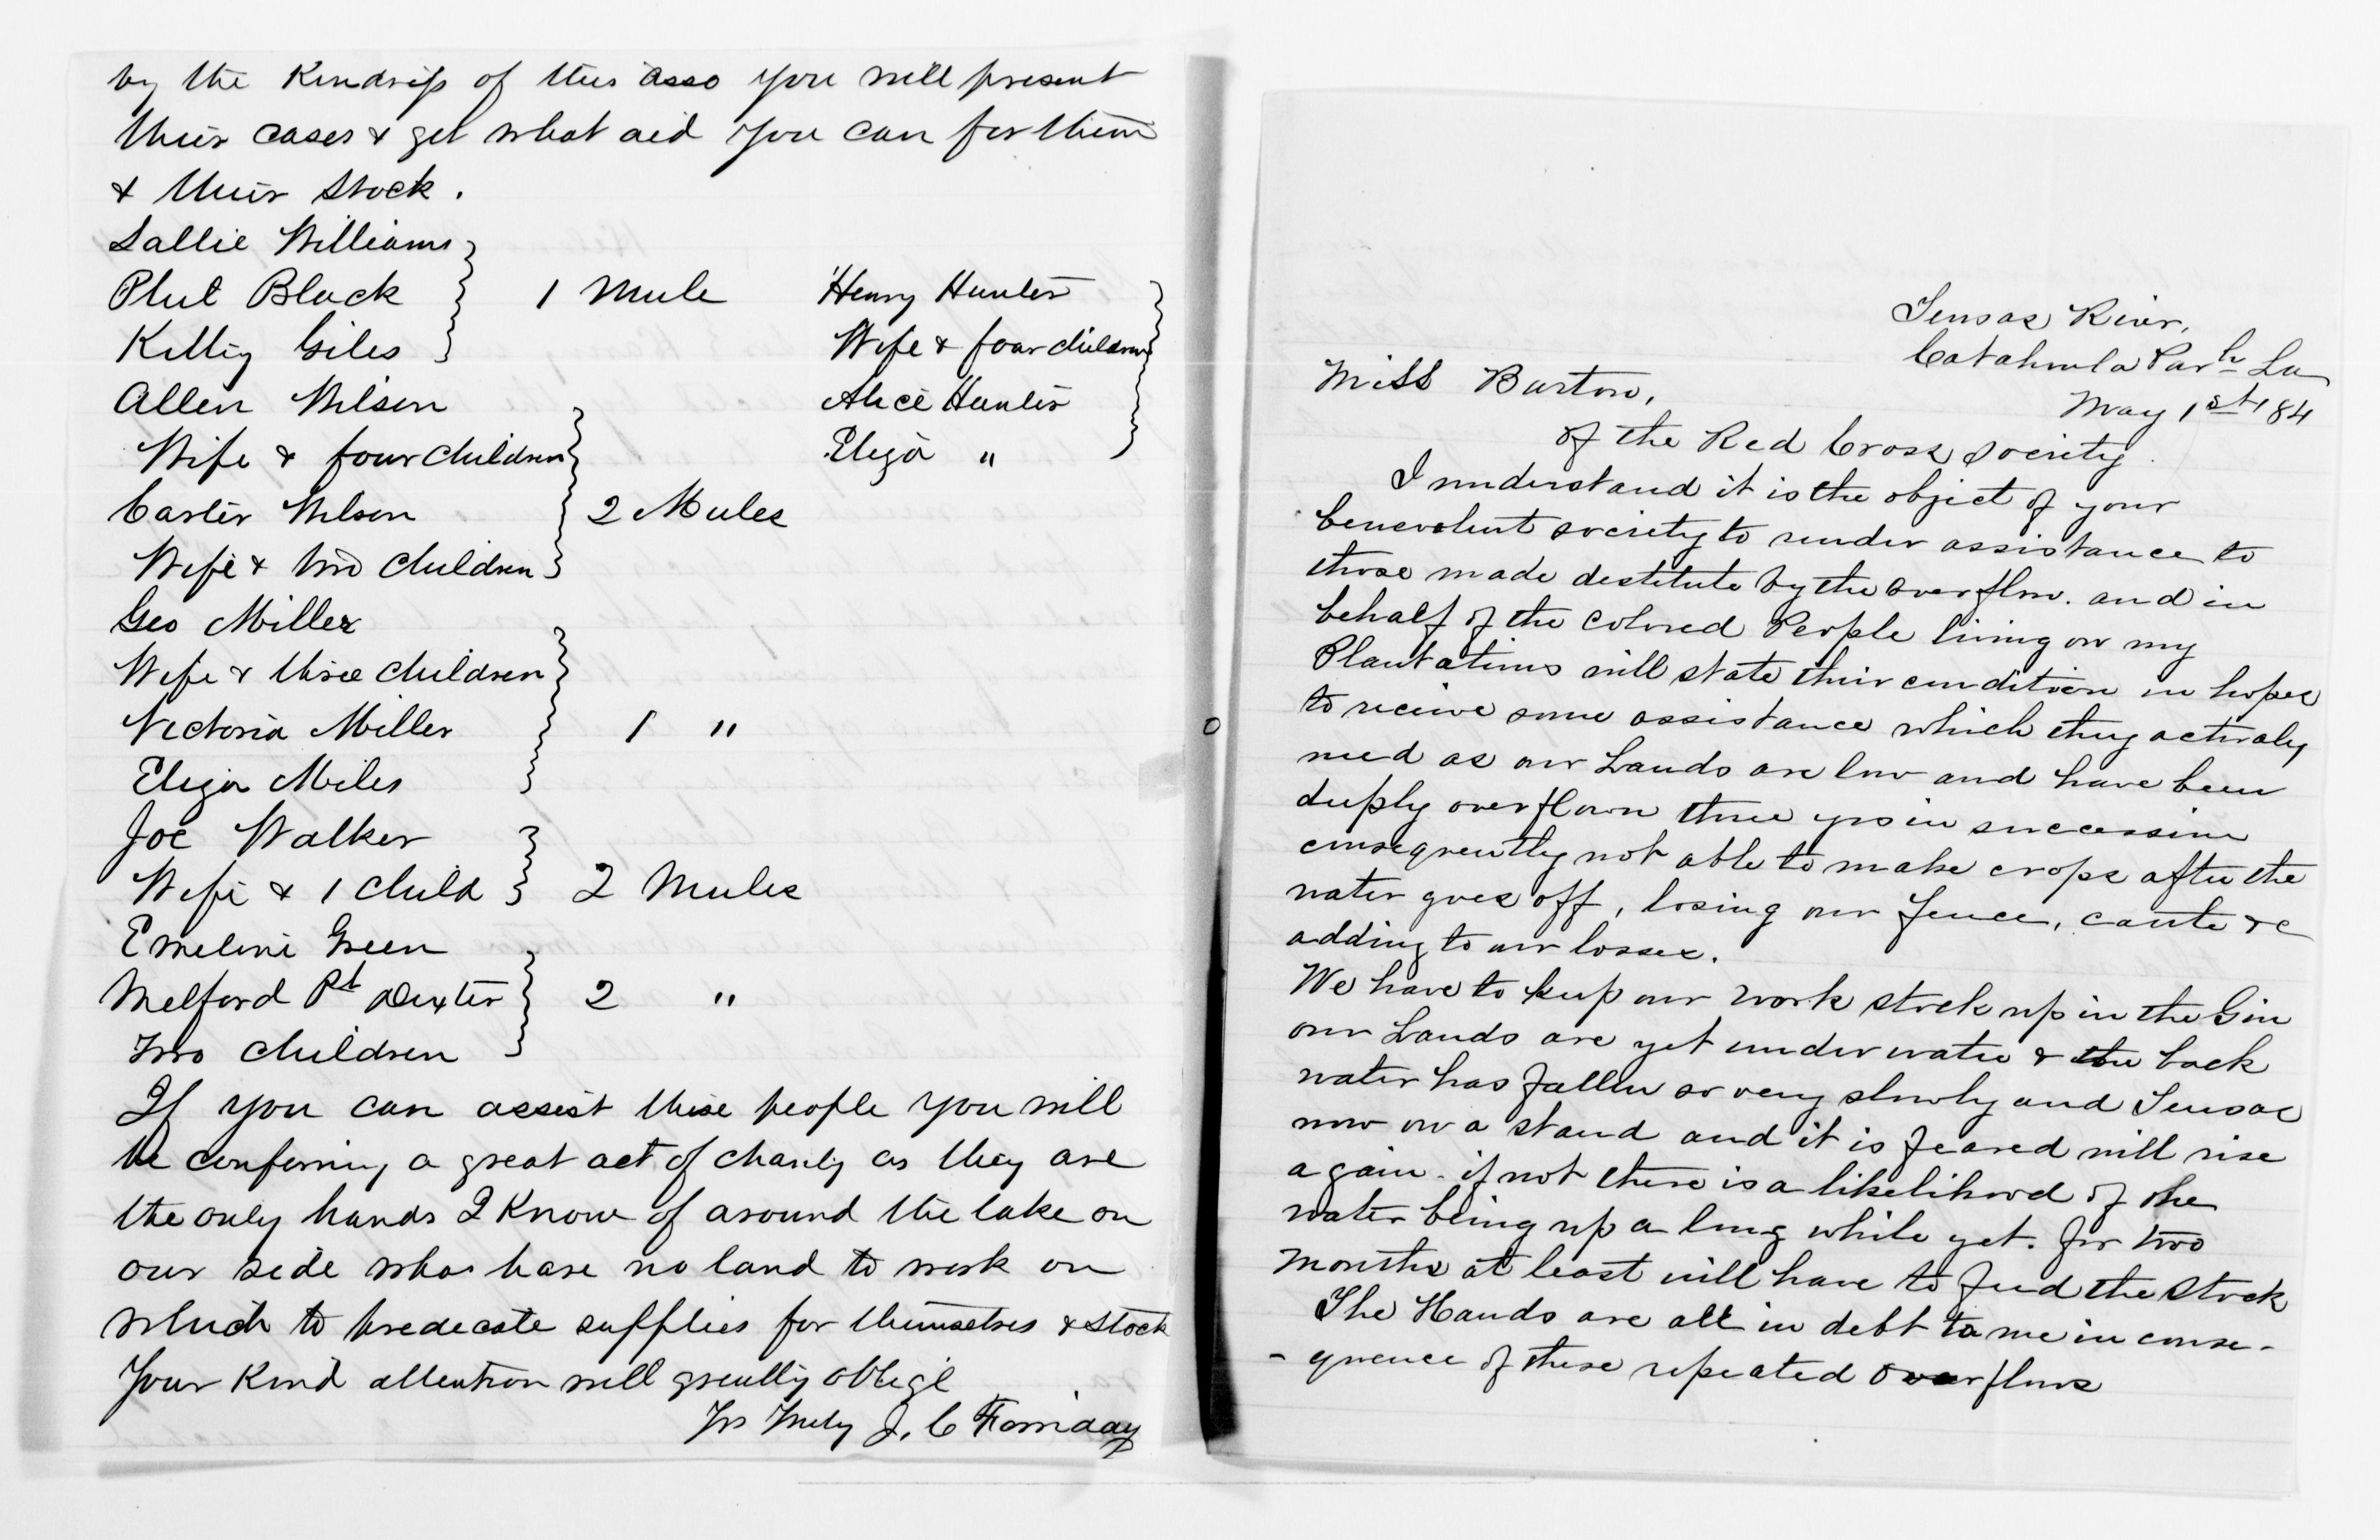 by the Kindness of this asso you will present
their cases & get what aid you can for them
& their stock.
Sallie Williams
Phil Black
Kitty Giles
1 Mule
Allen Wilson
Wife & four children
Carter Wilson
Wife & two children
2 Mules
Geo Miller
Wife & three children
Victoria Miller
Eliza Miles
1 "
Joe Walker
Wife & 1 child
2 Mules
Emeline Green
Melford Pt Dexter
Two children
2 "
Henry Hunter
Wife & four children
Alice Hunter
Eliza "
If you can assist these people you will
be conferring a great act of charity as they are
the only hands I know of around the lake on
our side who have no land to work on
which to predecate supplies for themselves & stock
Your Kind attention will greatly oblige
Yrs Truly J. C Ferriday
Tensas River,
Catahoula Parh La
May 1st 84
Miss Barton,
of the Red Cross Society
I understand it is the object of your
benevolent society to render assistance to
those made destitute by the overflow. and in
behalf of the colored People living on my
Plantations will state their condition in hopes
to receive some assistance which they actualy
need as our Lands are low and have been
deeply overflown three yrs in succession
consequently not able to make crops after the
water goes off, losing our fence, cattle &c
adding to our losses.
We have to keep our work stock up in the Gin
our Lands are yet under water & the back
water has fallen so very slowly and Tensas
now on a stand and it is feared will rise
again - if not there is a likelihood of the
water being up a long while yet. for two
months at least will have to feed the stock
The Hands are all in debt to me in conse-
-quence of these repeated overflows